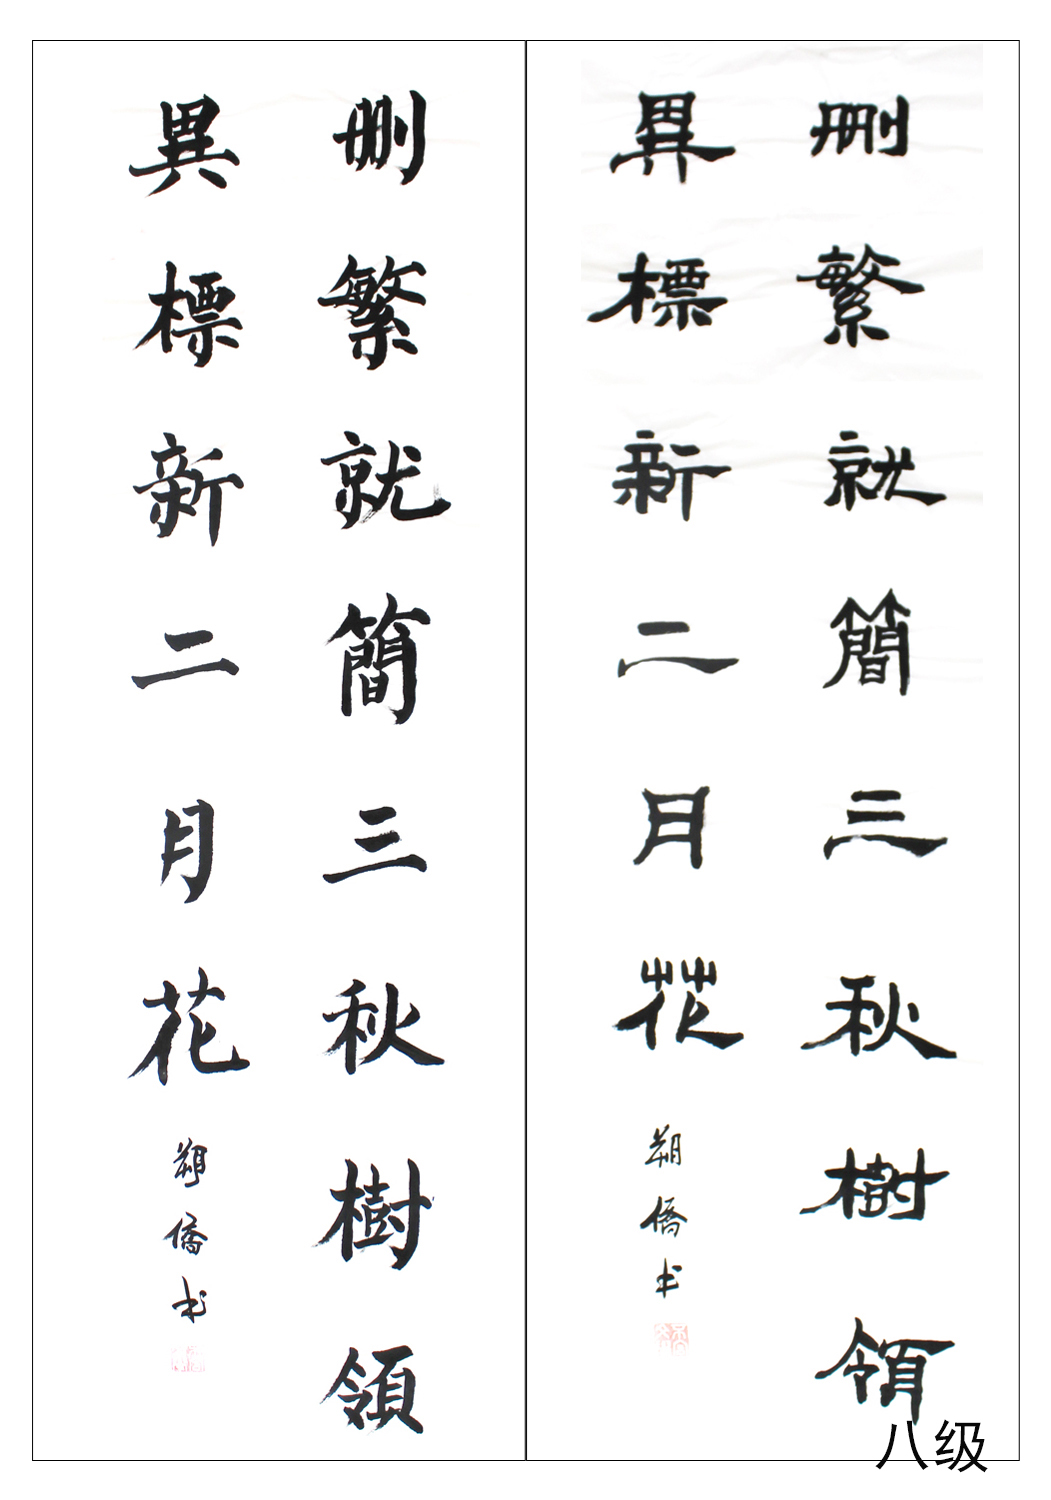 刪繁就簡三秋樹領
異標新二月花
朔僑书
刪繁就簡三秋樹領
異標新二月花
朔僑书
八级